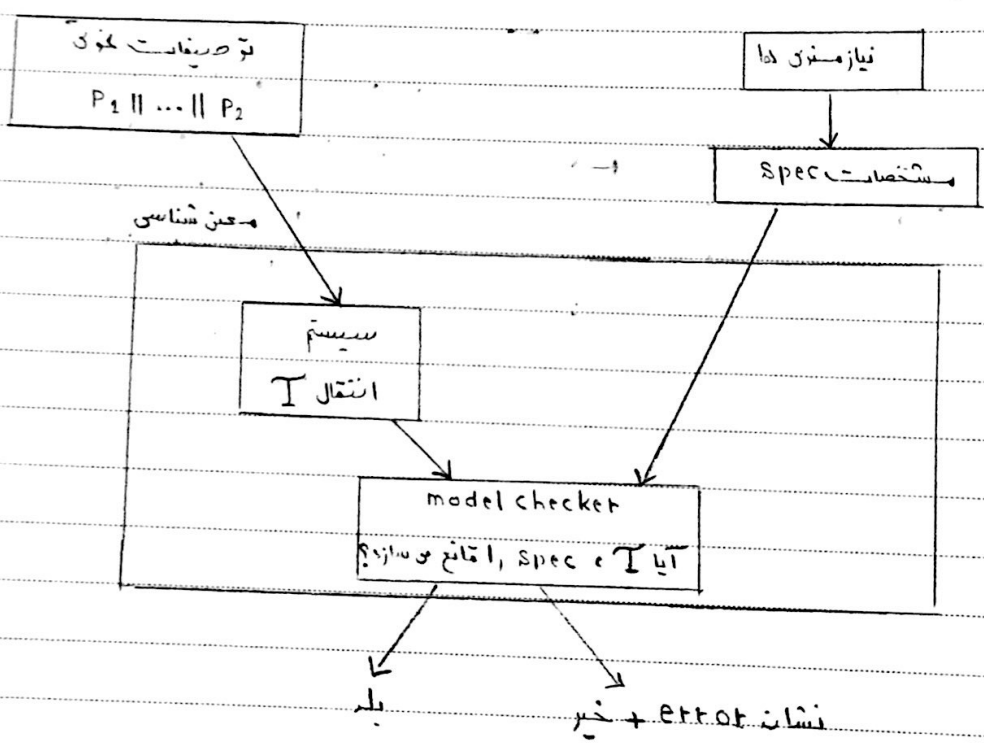 توصیفات نحوی
P1 || ... || P2
نیازمندی ها
مشخصات spec
معنی شناسی
سیستم
انتقال T
model checker
آیا T ، spec را قانع می سازد؟
بله
خیر + error نشان